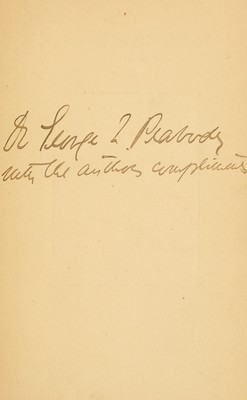 Dr George L Peabody
with the authors compliments